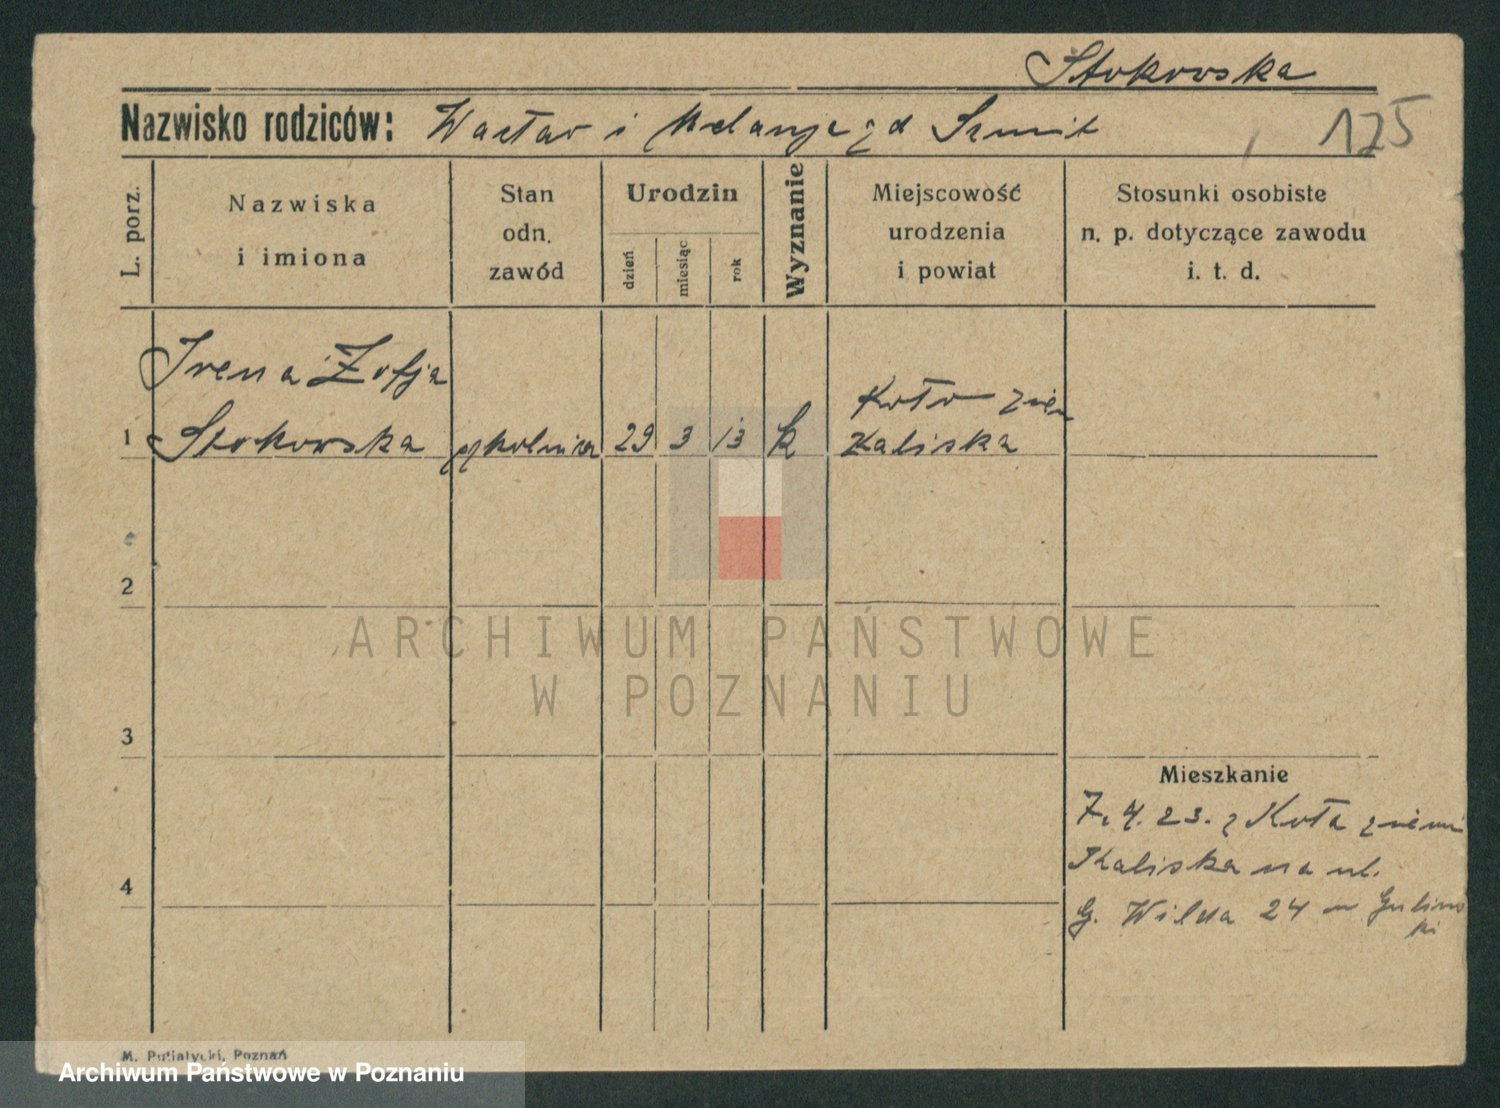 Stokowska
Nazwisko rodziców: Wacław i Melanja zd Szmit
175
L. porz.
Nazwiska
i imiona
Stan
odn.
zawód
Urodzin
dzień
miesiąc
rok
Wyznanie
Miejscowość
urodzenia
i powiat
Stosunki osobiste
n. p. dotyczące zawodu
i. t. d.
Irena Zofja
Koło ziem
1 Stokowska 29 3 13 k Kaliska
2
ARCHIWUM PAŃSTWOWE
W POZNANIU
3
Mieszkanie
7. 4. 23. z Koła ziemi
Kaliska na ul.
4
G. Wilda 24 u
M. Putiatycki, Poznań
Archiwum Państwowe w Poznaniu